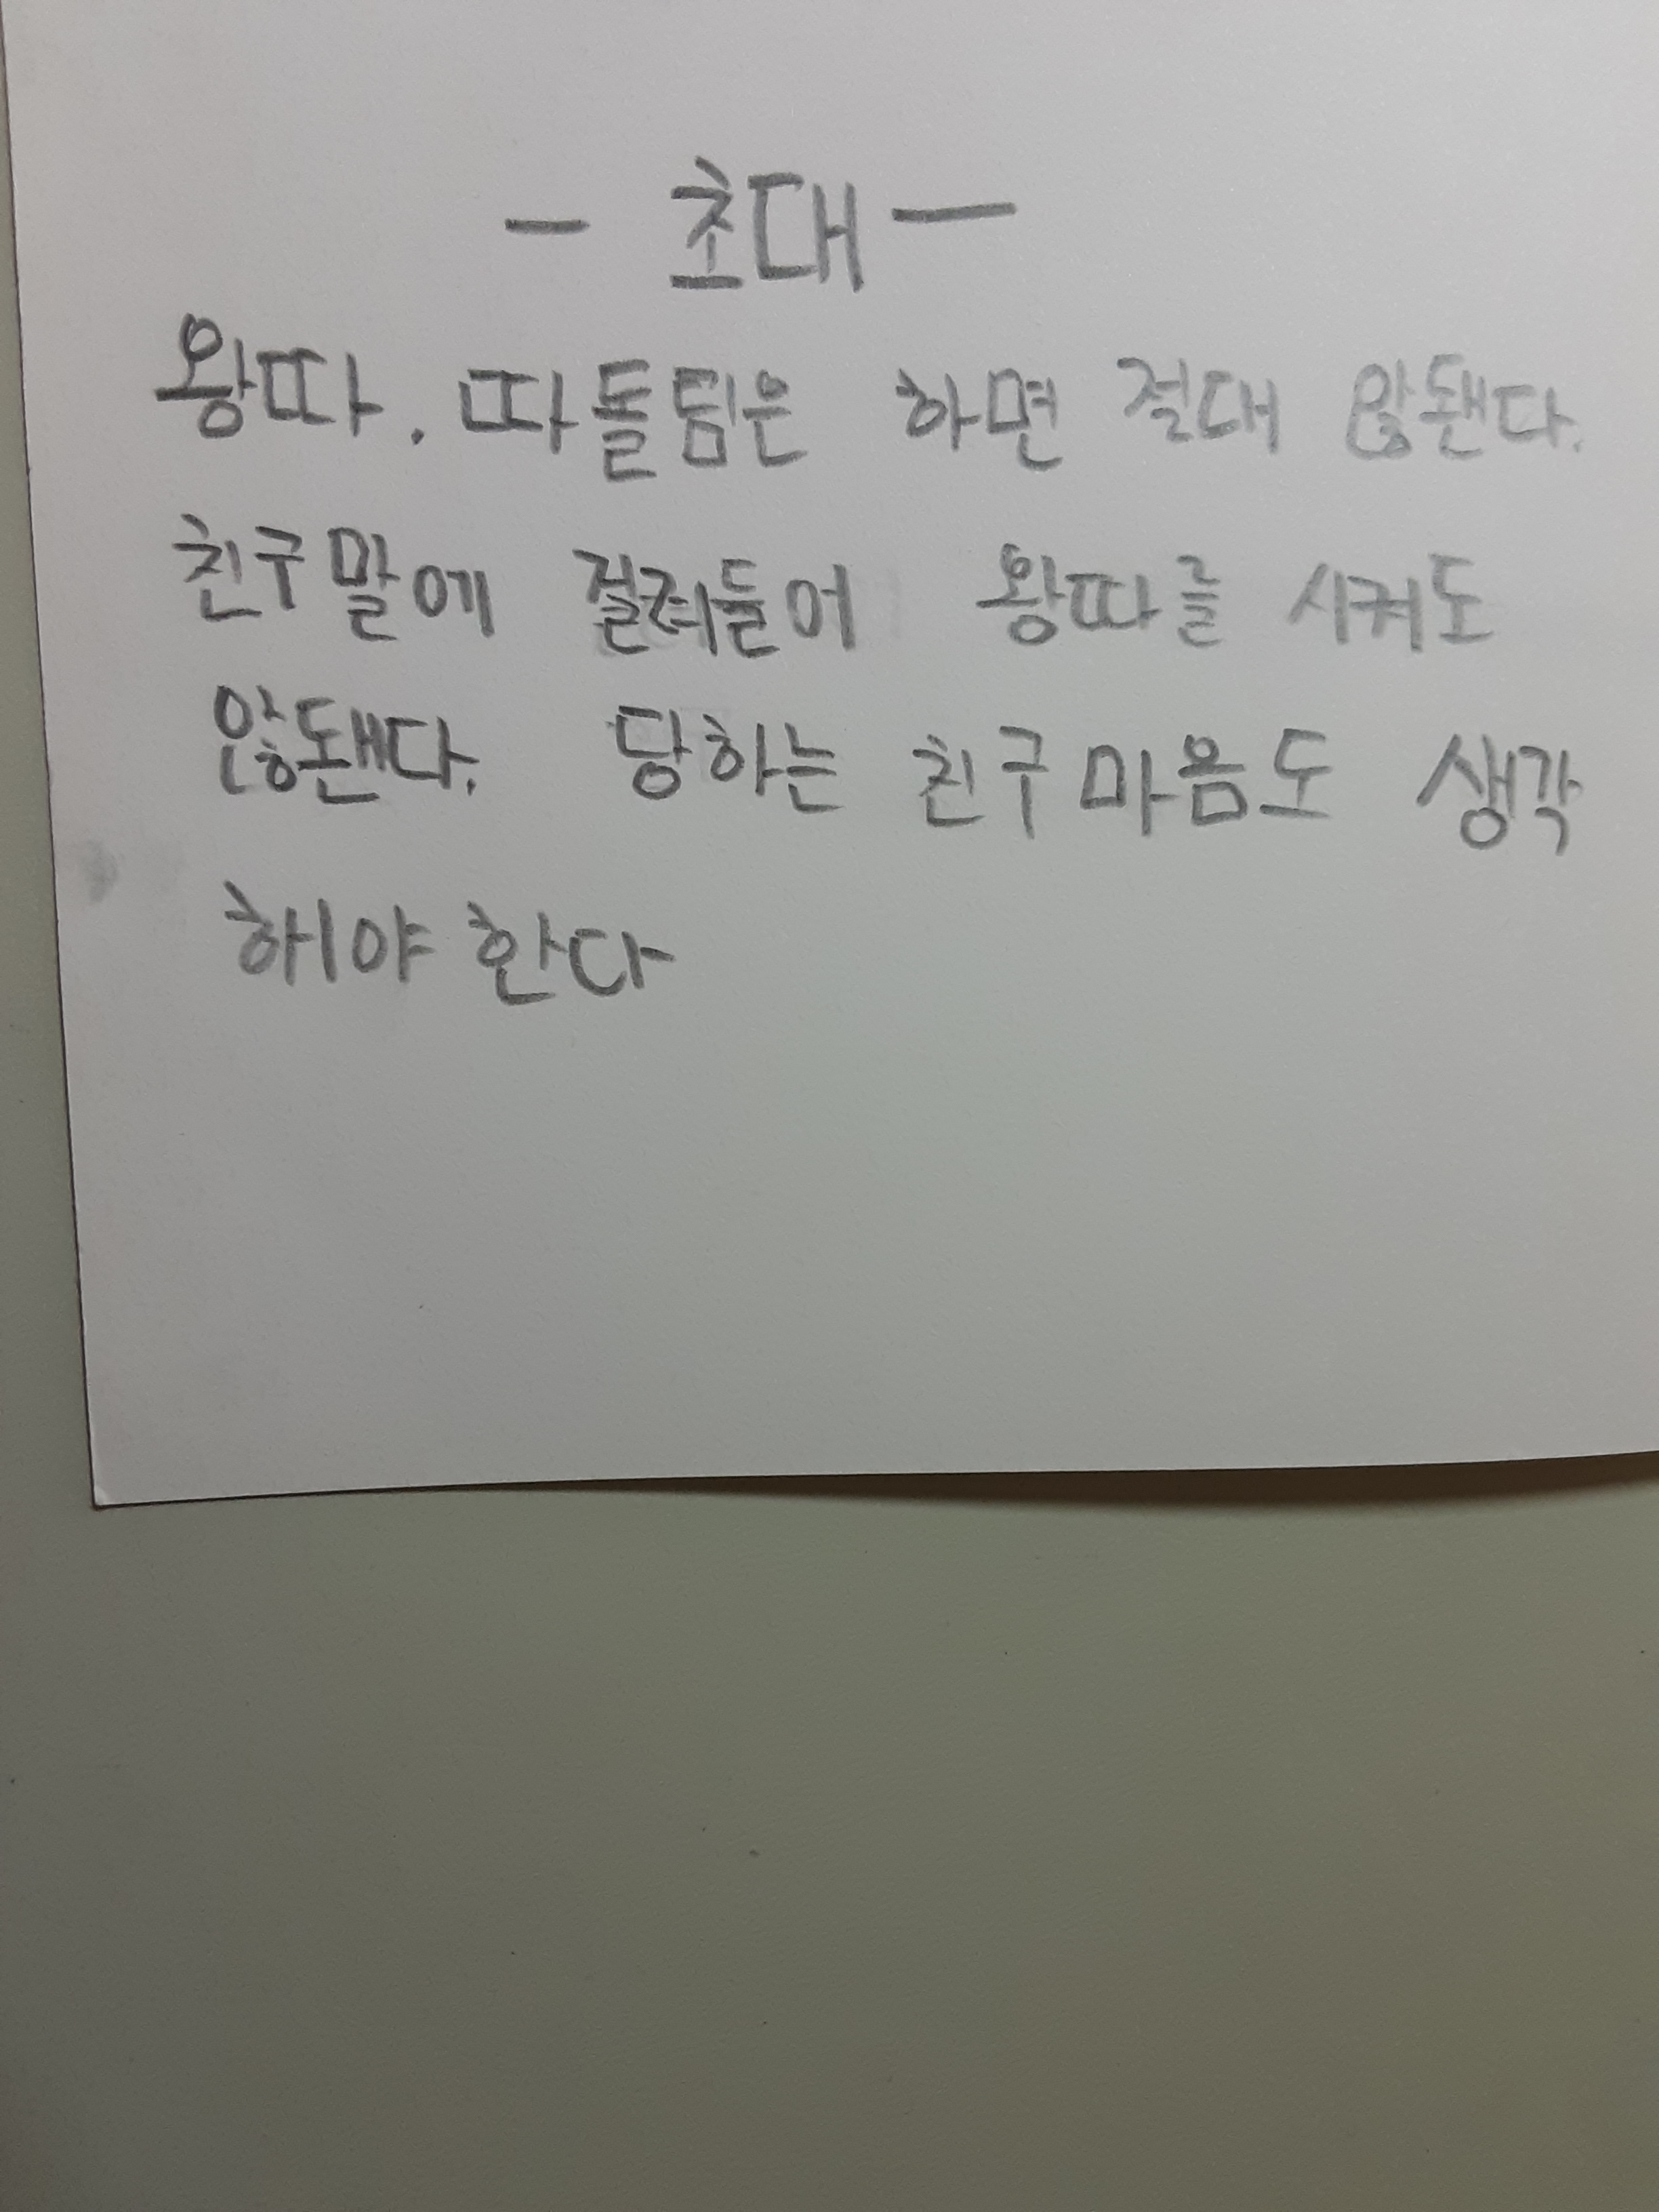 - 초대 -
왕따. 따돌림은 하면 절대 않됀다.
친구말에 걸려들어 왕따를 시켜도
않됀다. 당하는 친구마음도 생각
해야 한다